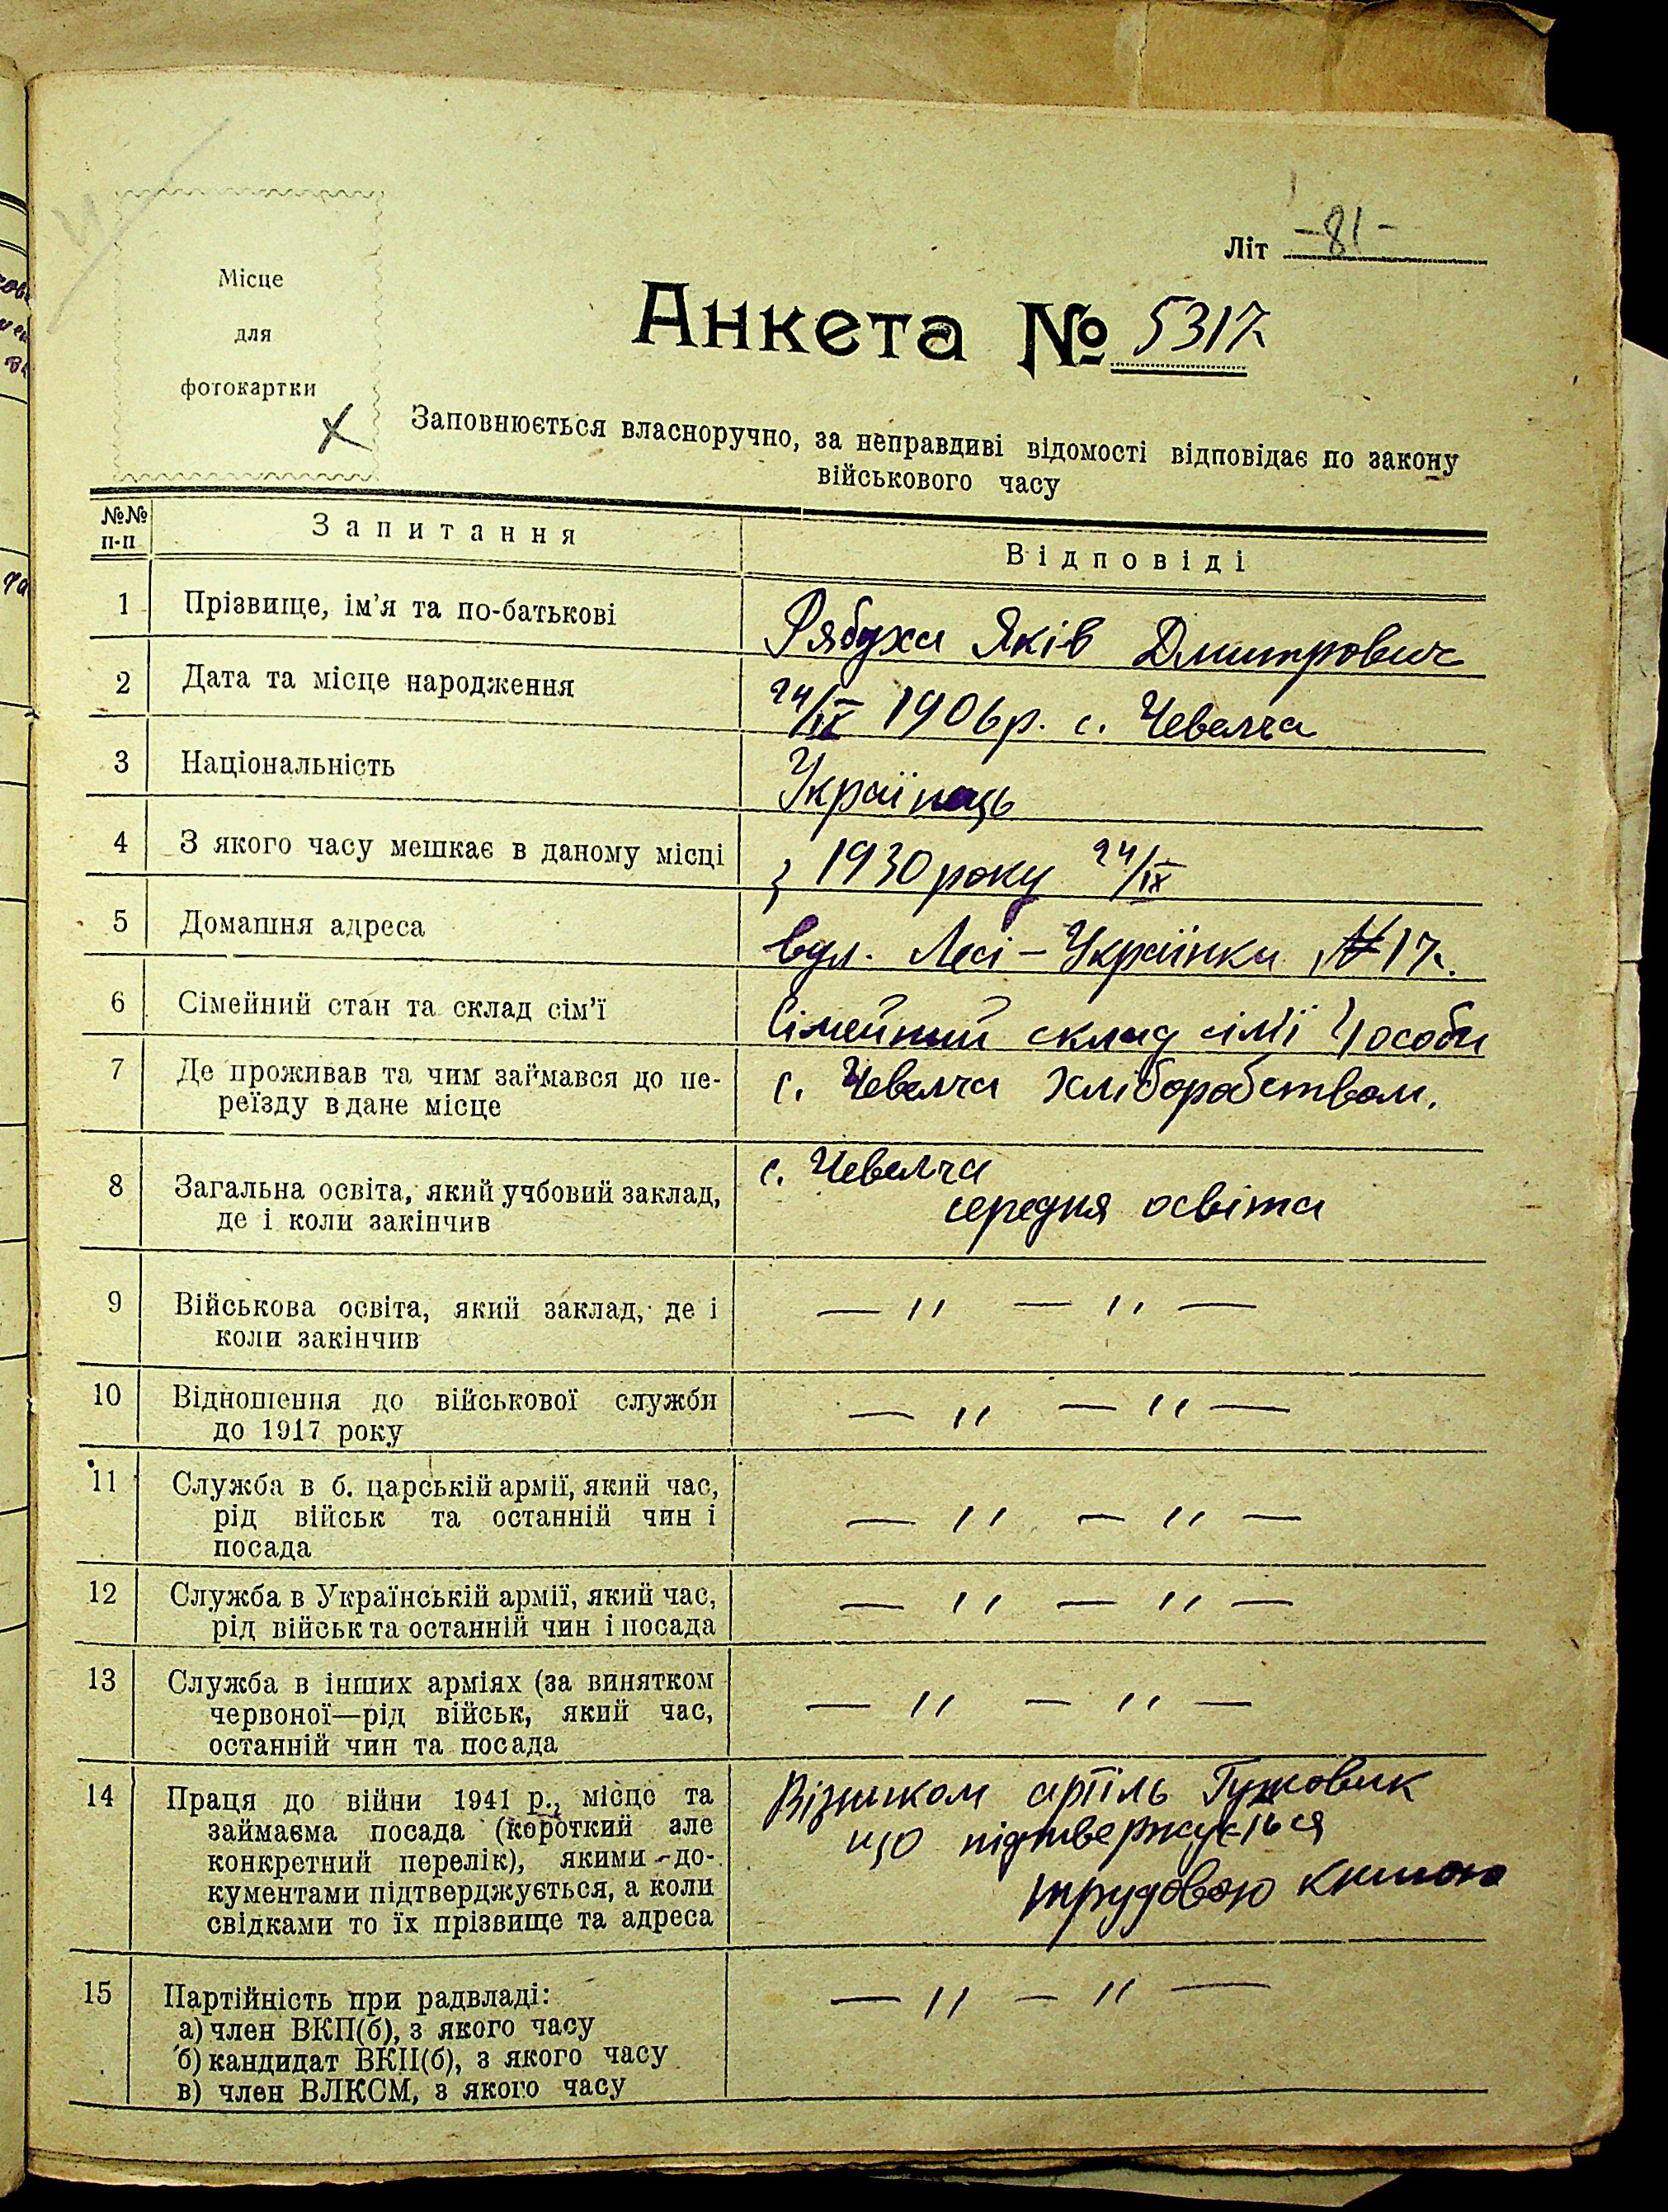 Літ -81-
Місце
для
фотокартки
Анкета № 5317
Заповнюється власноручно, за неправдиві відомості відповідає по закону
військового часу
№№ п-п Запитання Відповіді
1 Прізвище, ім'я та по-батькові Рябуха Яків Дмитрович
2 Дата та місце народження 24/ІХ 1906р. с. Чевелча
3 Національність Українець
4 З якого часу мешкає в даному місці з 1930 року 24/ІХ
5 Домашня адреса вул. Лесі-Українки № 17.
6 Сімейний стан та склад сім'ї Сімейний склад сімї 4 особи
7 Де проживав та чим займався до пе- с. Чевелча Хліборобством.
реїзду в дане місце
8 Загальна освіта, який учбовий заклад, с. Чевелча
де і коли закінчив середня освіта
9 Військова освіта, який заклад, де і — '' — '' —
коли закінчив
10 Відношення до військової служби — '' — '' —
до 1917 року
11 Служба в б. царській армії, який час,
рід військ та останній чин і — '' — '' —
посада
12 Служба в Українській армії, який час, — '' — '' —
рід військ та останній чин і посада
13 Служба в інших арміях (за винятком — '' — '' —
червоної—рід військ, який час,
останній чин та посада
14 Праця до війни 1941 р., місце та Візником артіль Гужовик
займаєма посада (короткий але що підтвержується
конкретний перелік), якими до-
кументами підтверджується, а коли трудовою книгою
свідками то їх прізвище та адреса
15 Партійність при радвладі: — '' — '' —
а) член ВКП(б), з якого часу
б) кандидат ВКП(б), з якого часу
в) член ВЛКСМ, з якого часу